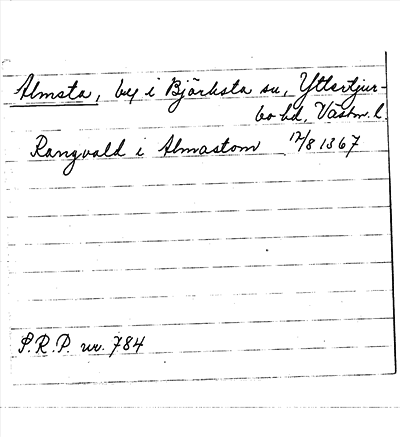 Almsta, by i Björksta sn, Yttertjur-
bo hd, Västm. l.
Rangvald i Almastom 12/8 1367
S.R.P. nr. 784